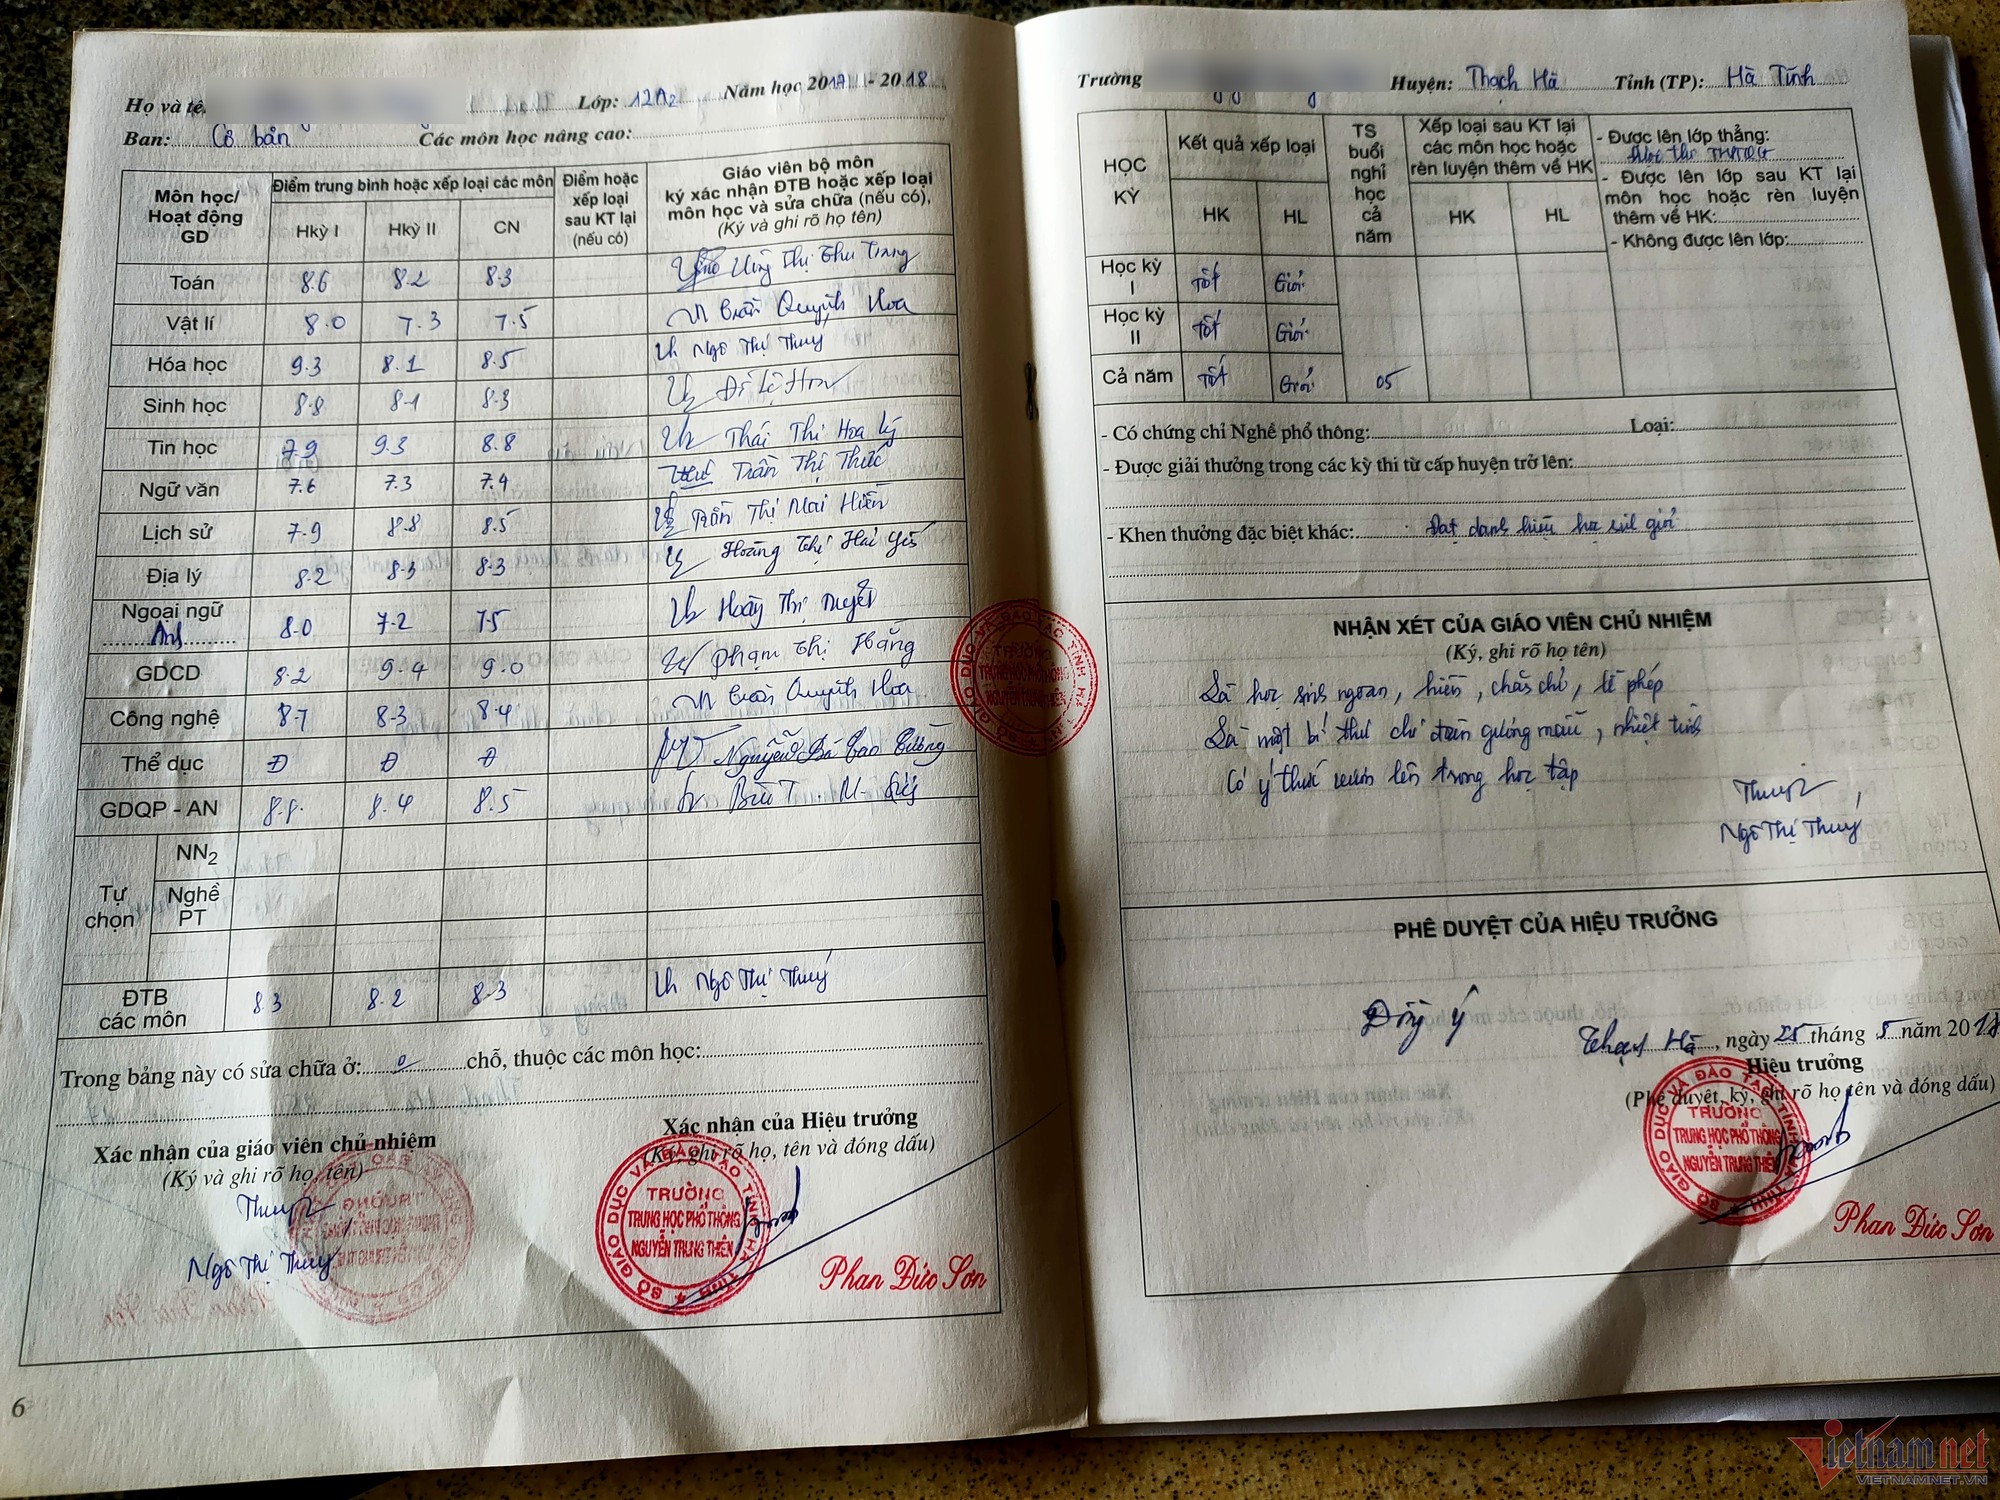 Họ và tê
Lớp: 12A2
Năm học 2017 - 2018
Ban: Cơ bản
Các môn học nâng cao:
Môn học/ Hoạt động GD
Điểm trung bình hoặc xếp loại các môn
Hkỳ I
Hkỳ II
CN
Điểm hoặc xếp loại sau KT lại (nếu có)
Giáo viên bộ môn ký xác nhận ĐTB hoặc xếp loại môn học và sửa chữa (nếu có), (Ký và ghi rõ họ tên)
Toán 8.6 8.2 8.3 Thị Thu Trang
Vật lí 8.0 7.3 7.5 Trần Quỳnh Hoa
Hóa học 9.3 8.1 8.5 Ngô Thị Thuý
Sinh học 8.8 8.1 8.3
Tin học 7.9 9.3 8.8 Thái Thị Hoa Lý
Ngữ văn 7.6 7.3 7.4 Trần Thị Thức
Lịch sử 7.9 8.8 8.5 Trần Thị Mai Hiền
Địa lý 8.2 8.3 8.3 Hoàng Thị Hải Yến
Ngoại ngữ Anh 8.0 7.2 7.5 Hoàng Thị Tuyết
GDCD 8.2 9.4 9.0 Phạm Thị Hằng
Công nghệ 8.7 8.3 8.4 Trần Quỳnh Hoa
Thể dục Đ Đ Đ Nguyễn Bá Cao Cường
GDQP - AN 8.8 8.4 8.5
Tự chọn
NN2
Nghề PT
ĐTB các môn 8.3 8.2 8.3 Ngô Thị Thuý
Trong bảng này có sửa chữa ở: 0 chỗ, thuộc các môn học:
Xác nhận của giáo viên chủ nhiệm
(Ký và ghi rõ họ, tên)
Ngô Thị Thuý
Xác nhận của Hiệu trưởng
(Ký, ghi rõ họ, tên và đóng dấu)
SỞ GIÁO DỤC VÀ ĐÀO TẠO TỈNH HÀ TĨNH
TRƯỜNG
TRUNG HỌC PHỔ THÔNG
NGUYỄN TRUNG THIÊN
Phan Đức Sơn
6
Trường
Huyện: Thạch Hà
Tỉnh (TP): Hà Tĩnh
HỌC KỲ
Kết quả xếp loại
HK
HL
TS buổi nghỉ học cả năm
Xếp loại sau KT lại các môn học hoặc rèn luyện thêm về HK
HK
HL
- Được lên lớp thẳng:
- Được lên lớp sau KT lại
môn học hoặc rèn luyện
thêm về HK:
- Không được lên lớp:
Học kỳ I Tốt Giỏi
Học kỳ II Tốt Giỏi
Cả năm Tốt Giỏi 05
- Có chứng chỉ Nghề phổ thông: Loại:
- Được giải thưởng trong các kỳ thi từ cấp huyện trở lên:
- Khen thưởng đặc biệt khác: Đạt danh hiệu học sinh giỏi
NHẬN XÉT CỦA GIÁO VIÊN CHỦ NHIỆM
(Ký, ghi rõ họ tên)
Là học sinh ngoan, hiền, chăm chỉ, lễ phép
Là một bí thư chi đoàn gương mẫu, nhiệt tình
Có ý thức vươn lên trong học tập
Ngô Thị Thuý
PHÊ DUYỆT CỦA HIỆU TRƯỞNG
Đồng ý
Thạch Hà, ngày 25 tháng 5 năm 2018
Hiệu trưởng
(Phê duyệt, ký, ghi rõ họ tên và đóng dấu)
SỞ GIÁO DỤC VÀ ĐÀO TẠO TỈNH HÀ TĨNH
TRƯỜNG
TRUNG HỌC PHỔ THÔNG
NGUYỄN TRUNG THIÊN
Phan Đức Sơn
SỞ GIÁO DỤC VÀ ĐÀO TẠO TỈNH HÀ TĨNH
TRƯỜNG
TRUNG HỌC PHỔ THÔNG
NGUYỄN TRUNG THIÊN
Vietnamnet
VIETNAMNET.VN